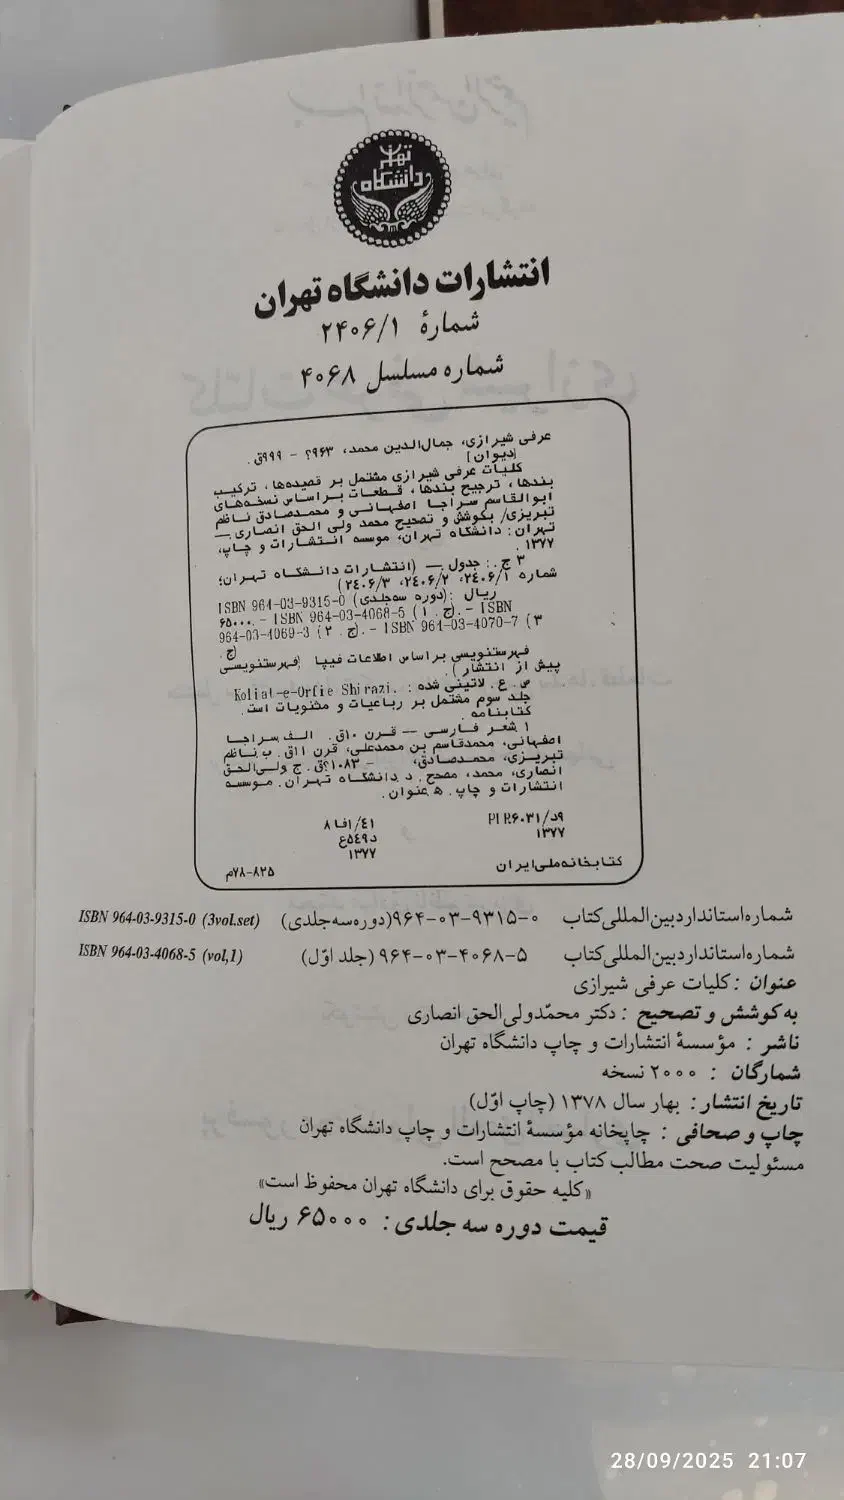 دانشگاه تهران
انتشارات دانشگاه تهران
شمارهٔ ۲۴۰۶/۱
شماره مسلسل ۴۰۶۸
عرفی شیرازی، جمال‌الدین محمد، ۹۶۳؟ - ۹۹۹ق.
[دیوان]
کلیات عرفی شیرازی مشتمل بر قصیده‌ها، ترکیب
بندها، ترجیح بندها، قطعات براساس نسخه‌های
ابوالقاسم سراجا اصفهانی و محمدصادق ناظم
تبریزی/ بکوشش و تصحیح محمد ولی الحق انصاری.—
تهران: دانشگاه تهران، موسسه انتشارات و چاپ،
۱۳۷۷.
۳ ج.: جدول.— (انتشارات دانشگاه تهران؛
شماره ۲۴۰۶/۱، ۲۴۰۶/۲، ۲۴۰۶/۳)
ریال :(دوره سه‌جلدی) ISBN 964-03-9315-0
۶۵۰۰۰.- ISBN 964-03-4068-5 (ج. ۱).- ISBN
964-03-4069-3 (ج. ۲).- ISBN 964-03-4070-7 (۳
ج.
فهرستنویسی براساس اطلاعات فیپا (فهرستنویسی
پیش از انتشار).
ص. ع. لاتینی شده: Koliat-e-Orfie Shirazi.
جلد سوم مشتمل بر رباعیات و مثنویات است.
کتابنامه.
۱. شعر فارسی -- قرن ۱۰ق. الف. سراجا
اصفهانی، محمدقاسم بن محمدعلی، قرن ۱۱ق. ب. ناظم
تبریزی، محمدصادق، - ۱۰۸۳؟ق. ج. ولی‌الحق
انصاری، محمد، مصحح. د. دانشگاه تهران. موسسه
انتشارات و چاپ. ه. عنوان.
۸فا۱/۴۱ PIR۶۰۳۱/د۹
ع۵۴۹د ۱۳۷۷
۱۳۷۷
کتابخانه ملی ایران م۷۸-۸۲۵
شماره استاندارد بین‌المللی کتاب ۰-۹۳۱۵-۰۳-۹۶۴(دوره سه‌جلدی) ISBN 964-03-9315-0 (3vol.set)
شماره استاندارد بین‌المللی کتاب ۵-۴۰۶۸-۰۳-۹۶۴ (جلد اوّل) ISBN 964-03-4068-5 (vol,1)
عنوان : کلیات عرفی شیرازی
به کوشش و تصحیح : دکتر محمّدولی‌الحق انصاری
ناشر : مؤسسهٔ انتشارات و چاپ دانشگاه تهران
شمارگان : ۲۰۰۰ نسخه
تاریخ انتشار : بهار سال ۱۳۷۸ (چاپ اوّل)
چاپ و صحافی : چاپخانه مؤسسهٔ انتشارات و چاپ دانشگاه تهران
مسئولیت صحت مطالب کتاب با مصحح است.
«کلیه حقوق برای دانشگاه تهران محفوظ است»
قیمت دوره سه جلدی: ۶۵۰۰۰ ریال
28/09/2025 21:07